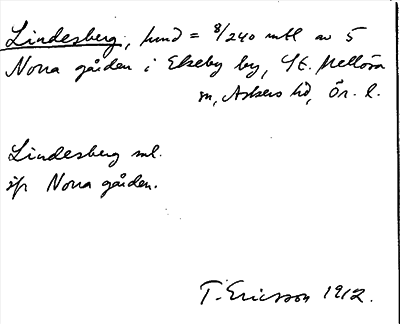 Lindesberg, hmd = 8/240 mtl av 5
Norra gården i Ekeby by, St. Mellösa
sn, Askers hd, Ör. l.
Lindesberg ml.
Norra gården.
T. Ericsson 1912.